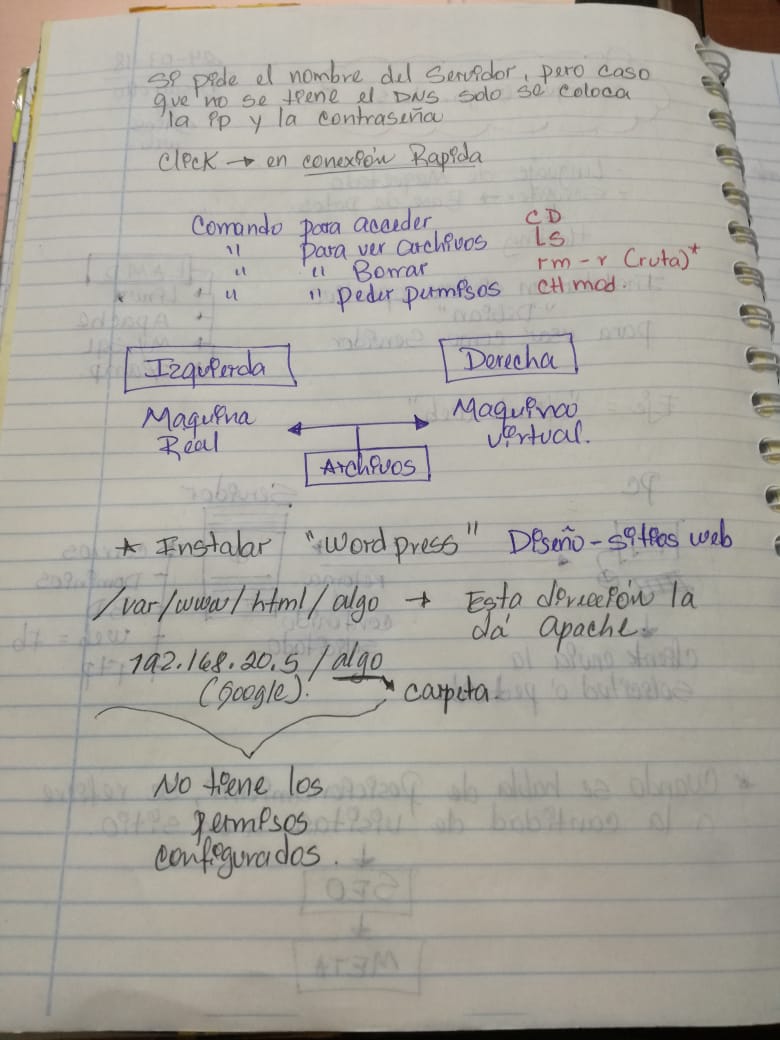 Si pide el nombre del Servidor, pero caso
que no se tiene el DNS solo se coloca
la ip y la contraseña
Click → en conexión Rapida
Comando para acceder CD
" para ver archivos LS
" " Borrar rm -r (ruta)*
" " peder permisos CHmod.
Izquierda Derecha
Maquina Real Maquina virtual.
Archivos
* Instalar "Wordpress" Diseño - sitios web
/var/www/html/algo → Esta dirección la
dá Apache.
192.168.20.5/algo
(Google). carpeta.
No tiene los
permisos
configurados.